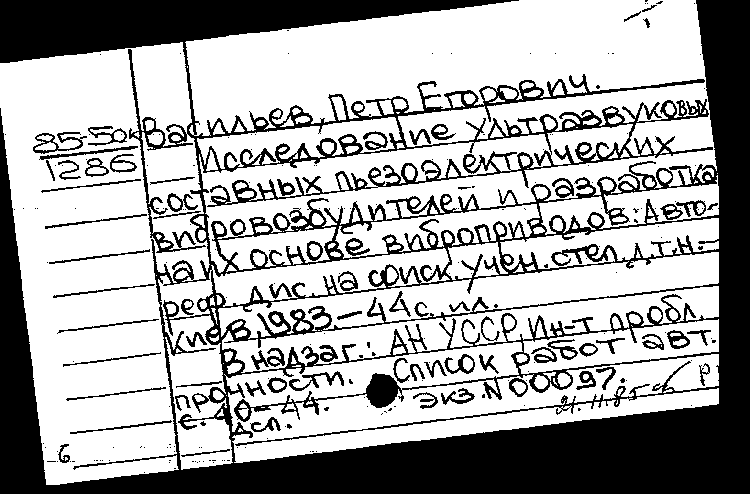 85-50к
1286
Васильев, Петр Егорович.
Исследование ультразвуковых
составных пьезоэлектрических
вибровозбудителей и разработка
на их основе виброприводов: Авто-
реф. дис. на соиск. учен. степ. д.т.н.-
Киев, 1983.-44 с., ил.
В надзаг.: АН УССР, Ин-т пробл.
прочности. Список работ авт.
с. 40-44. Экз. N 00097.
дсп.
21.11.85
б